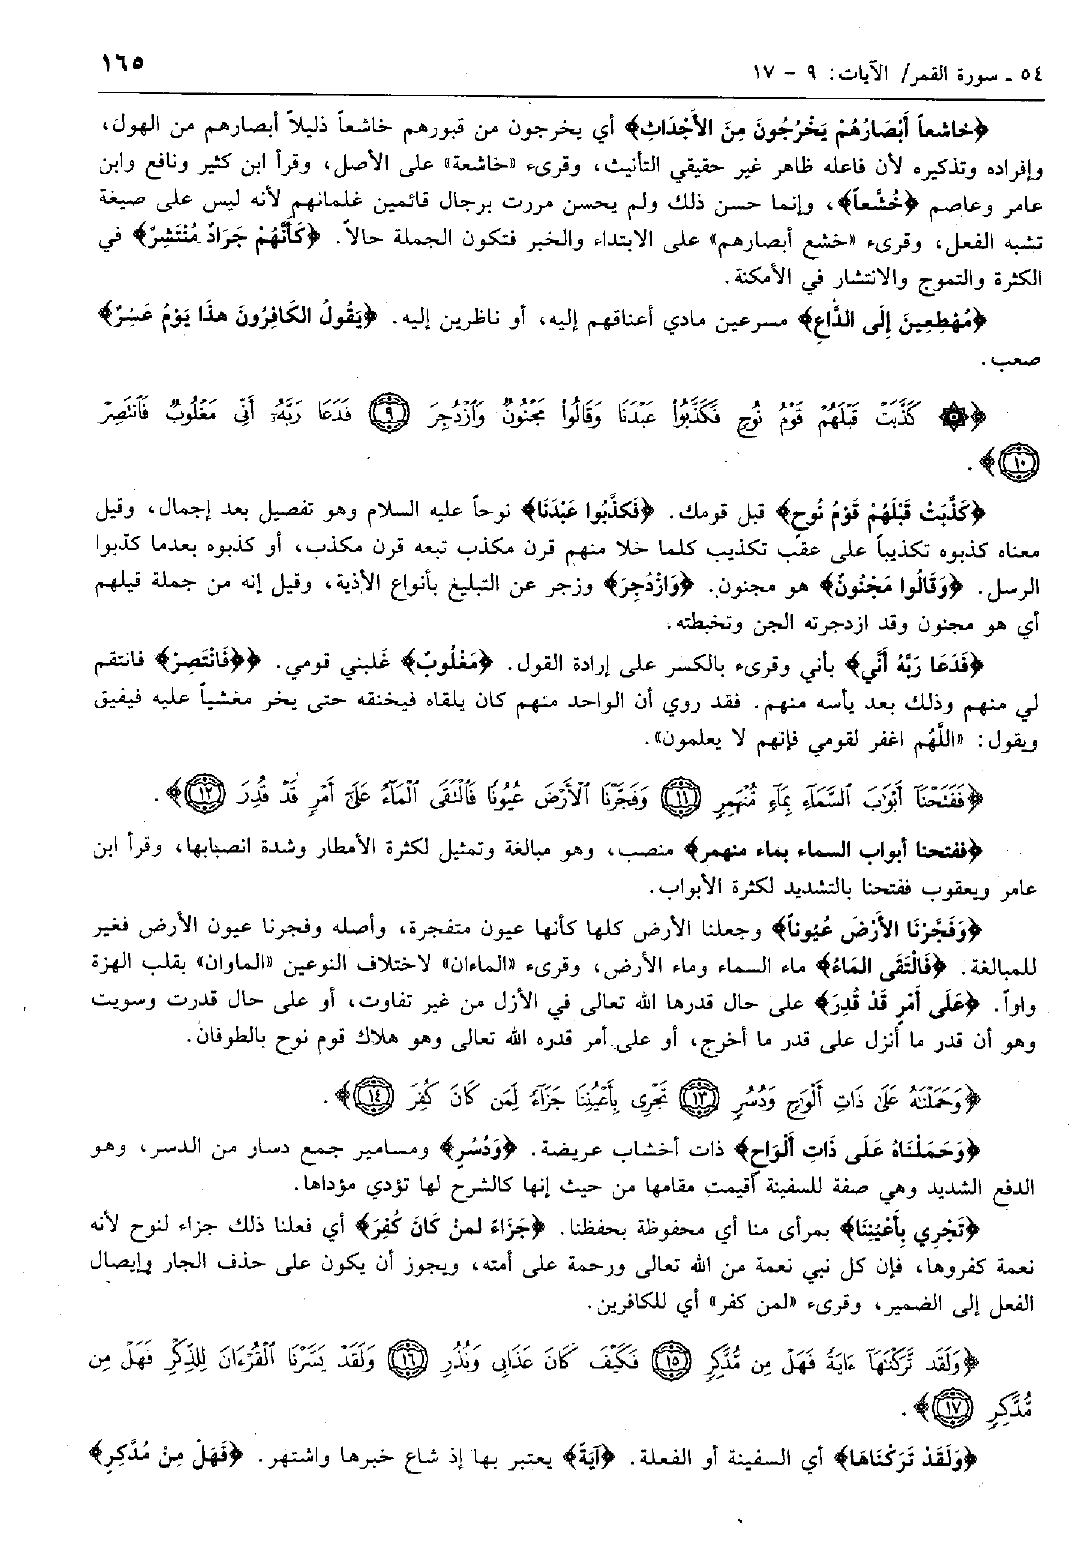 ٥٤ ـ سورة القمر/ الآيات: ٩ - ١٧
١٦٥
﴿خاشعاً أَبْصَارُهُمْ يَخْرُجُونَ مِنَ الأَجْدَاثِ﴾ أي يخرجون من قبورهم خاشعاً ذليلاً أبصارهم من الهول،
وإفراده وتذكيره لأن فاعله ظاهر غير حقيقي التأنيث، وقرىء «خاشعة» على الأصل، وقرأ ابن كثير ونافع وابن
عامر وعاصم ﴿خُشَّعاً﴾، وإنما حسن ذلك ولم يحسن مررت برجال قائمين غلمانهم لأنه ليس على صيغة
تشبه الفعل، وقرىء «خشع أبصارهم» على الابتداء والخبر فتكون الجملة حالاً. ﴿كَأَنَّهُمْ جَرَادٌ مُنْتَشِرٌ﴾ في
الكثرة والتموج والانتشار في الأمكنة.
﴿مُهْطِعِينَ إِلَى الدَّاعِ﴾ مسرعين مادي أعناقهم إليه، أو ناظرين إليه. ﴿يَقُولُ الكَافِرُونَ هذَا يَوْمٌ عَسِرٌ﴾
صعب.
﴿۞ كَذَّبَتْ قَبْلَهُمْ قَوْمُ نُوحٍ فَكَذَّبُوا۟ عَبْدَنَا وَقَالُوا۟ مَجْنُونٌ وَٱزْدُجِرَ ٩ فَدَعَا رَبَّهُۥٓ أَنِّى مَغْلُوبٌ فَٱنتَصِرْ
١٠﴾.
﴿كَذَّبَتْ قَبْلَهُمْ قَوْمُ نُوحٍ﴾ قبل قومك. ﴿فَكَذَّبُوا عَبْدَنَا﴾ نوحاً عليه السلام وهو تفصيل بعد إجمال، وقيل
معناه كذبوه تكذيباً على عقب تكذيب كلما خلا منهم قرن مكذب تبعه قرن مكذب، أو كذبوه بعدما كذبوا
الرسل. ﴿وَقَالُوا مَجْنُونٌ﴾ هو مجنون. ﴿وَازْدُجِرَ﴾ وزجر عن التبليغ بأنواع الأذية، وقيل إنه من جملة قيلهم
أي هو مجنون وقد ازدجرته الجن وتخبطته.
﴿فَدَعَا رَبَّهُ أَنِّي﴾ بأني وقرىء بالكسر على إرادة القول. ﴿مَغْلُوبٌ﴾ غلبني قومي. ﴿﴿فَانْتَصِرْ﴾ فانتقم
لي منهم وذلك بعد يأسه منهم. فقد روي أن الواحد منهم كان يلقاه فيخنقه حتى يخر مغشياً عليه فيفيق
ويقول: «اللَّهُم اغفر لقومي فإنهم لا يعلمون».
﴿فَفَتَحْنَآ أَبْوَٰبَ ٱلسَّمَآءِ بِمَآءٍ مُّنْهَمِرٍ ١١ وَفَجَّرْنَا ٱلْأَرْضَ عُيُونًا فَٱلْتَقَى ٱلْمَآءُ عَلَىٰٓ أَمْرٍ قَدْ قُدِرَ ١٢﴾.
﴿ففتحنا أبواب السماء بماء منهمر﴾ منصب، وهو مبالغة وتمثيل لكثرة الأمطار وشدة انصبابها، وقرأ ابن
عامر ويعقوب ففتحنا بالتشديد لكثرة الأبواب.
﴿وَفَجَّرْنَا الأَرْضَ عُيُوناً﴾ وجعلنا الأرض كلها كأنها عيون متفجرة، وأصله وفجرنا عيون الأرض فغير
للمبالغة. ﴿فَالْتَقَى المَاءُ﴾ ماء السماء وماء الأرض، وقرىء «الماءان» لاختلاف النوعين «الماوان» بقلب الهزة
واواً. ﴿عَلَى أَمْرٍ قَدْ قُدِرَ﴾ على حال قدرها الله تعالى في الأزل من غير تفاوت، أو على حال قدرت وسويت
وهو أن قدر ما أنزل على قدر ما أخرج، أو على أمر قدره الله تعالى وهو هلاك قوم نوح بالطوفان.
﴿وَحَمَلْنَٰهُ عَلَىٰ ذَاتِ أَلْوَٰحٍ وَدُسُرٍ ١٣ تَجْرِى بِأَعْيُنِنَا جَزَآءً لِّمَن كَانَ كُفِرَ ١٤﴾.
﴿وَحَمَلْنَاهُ عَلَى ذَاتِ أَلْوَاحٍ﴾ ذات أخشاب عريضة. ﴿وَدُسُرٍ﴾ ومسامير جمع دسار من الدسر، وهو
الدفع الشديد وهي صفة للسفينة أقيمت مقامها من حيث إنها كالشرح لها تؤدي مؤداها.
﴿تَجْرِي بِأَعْيُنِنَا﴾ بمرأى منا أي محفوظة بحفظنا. ﴿جَزَاءً لمنْ كَانَ كُفِرَ﴾ أي فعلنا ذلك جزاء لنوح لأنه
نعمة كفروها، فإن كل نبي نعمة من الله تعالى ورحمة على أمته، ويجوز أن يكون على حذف الجار وإيصال
الفعل إلى الضمير، وقرىء «لمن كفر» أي للكافرين.
﴿وَلَقَد تَّرَكْنَٰهَآ ءَايَةً فَهَلْ مِن مُّدَّكِرٍ ١٥ فَكَيْفَ كَانَ عَذَابِى وَنُذُرِ ١٦ وَلَقَدْ يَسَّرْنَا ٱلْقُرْءَانَ لِلذِّكْرِ فَهَلْ مِن
مُّدَّكِرٍ ١٧﴾.
﴿وَلَقَدْ تَرَكْنَاهَا﴾ أي السفينة أو الفعلة. ﴿آيَةً﴾ يعتبر بها إذ شاع خبرها واشتهر. ﴿فَهَلْ مِنْ مُدَّكِرٍ﴾